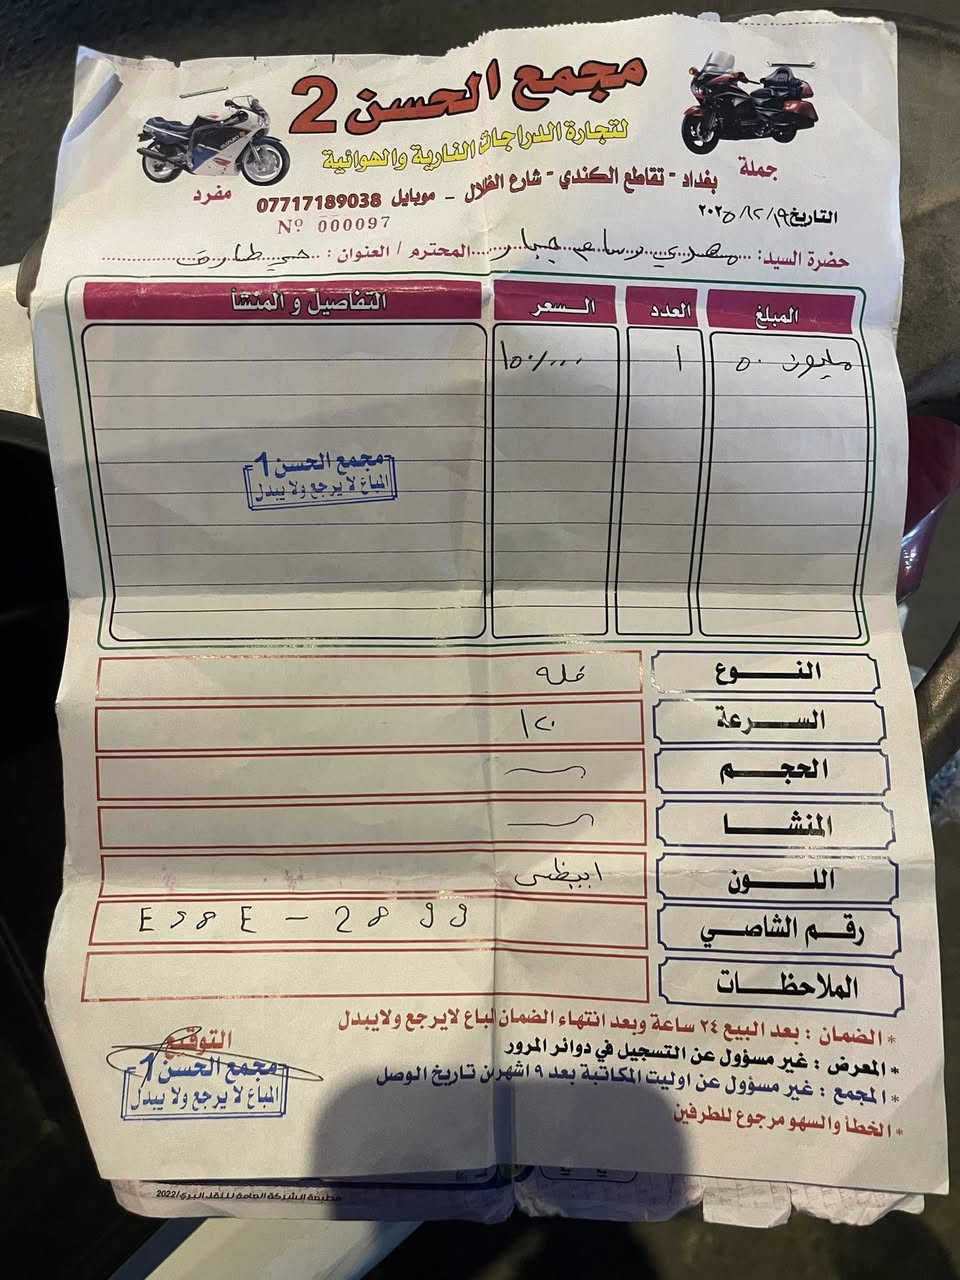 مجمع الحسن 2
لتجارة الدراجات النارية والهوائية
جملة
مفرد
بغداد - تقاطع الكندي - شارع الظلال - موبايل 07717189038
Nº 000097
التاريخ ١٩/١٢/٢٠٢٥
حضرة السيد: مهدي جبار المحترم / العنوان : حي طارق
المبلغ العدد السعر التفاصيل و المنشأ
مليون ٥٠ ١ ١٥٠/٠٠٠
مجمع الحسن 1
المباع لا يرجع ولا يبدل
النوع
السرعة ١٢٠
الحجم
المنشا
اللون ابيض
رقم الشاصي E58E - 2899
الملاحظات
* الضمان : بعد البيع ٢٤ ساعة وبعد انتهاء الضمان لباع لايرجع ولايبدل
* المعرض : غير مسؤول عن التسجيل في دوائر المرور
* المجمع : غير مسؤول عن اوليت المكاتبة بعد ٩ اشهر من تاريخ الوصل
* الخطأ والسهو مرجوع للطرفين
التوقيع
مجمع الحسن 1
المباع لا يرجع ولا يبدل
مطبعة الشركة العامة للنقل البري/2022